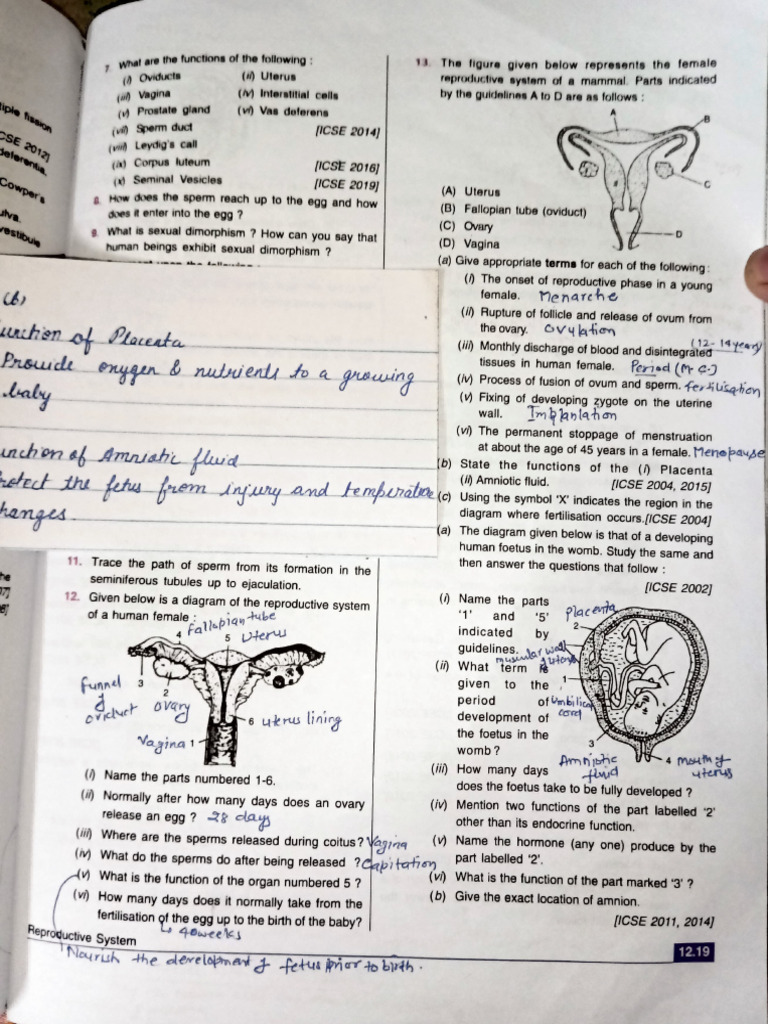 tiple fission
CSE 2012]
deferentia,
Cowper's
ulva.
vestibule
7. What are the functions of the following :
(i) Oviducts (ii) Uterus
(iii) Vagina (iv) Interstitial cells
(v) Prostate gland (vi) Vas deferens
(vii) Sperm duct [ICSE 2014]
(viii) Leydig's call
(ix) Corpus luteum [ICSE 2016]
(x) Seminal Vesicles [ICSE 2019]
8. How does the sperm reach up to the egg and how
does it enter into the egg ?
9. What is sexual dimorphism ? How can you say that
human beings exhibit sexual dimorphism ?
(b)
unction of Placenta
Provide oxygen & nutrients to a growing
baby
unction of Amniotic fluid
rotect the fetus from injury and temperature
hanges
11. Trace the path of sperm from its formation in the
seminiferous tubules up to ejaculation.
12. Given below is a diagram of the reproductive system
of a human female :
4 fallopian tube
5 uterus
3
funnel
of
oviduct
2
ovary
6 uterus lining
Vagina 1
(i) Name the parts numbered 1-6.
(ii) Normally after how many days does an ovary
release an egg ? 28 days
(iii) Where are the sperms released during coitus? Vagina
(iv) What do the sperms do after being released ? Capitation
(v) What is the function of the organ numbered 5 ?
(vi) How many days does it normally take from the
fertilisation of the egg up to the birth of the baby?
40 weeks
Reproductive System
Nourish the development of fetus prior to birth.
13. The figure given below represents the female
reproductive system of a mammal. Parts indicated
by the guidelines A to D are as follows :
A
B
C
D
(A) Uterus
(B) Fallopian tube (oviduct)
(C) Ovary
(D) Vagina
(a) Give appropriate terms for each of the following :
(i) The onset of reproductive phase in a young
female. Menarche
(ii) Rupture of follicle and release of ovum from
the ovary. Ovulation
(12-14 years)
(iii) Monthly discharge of blood and disintegrated
tissues in human female. Period (M.C.)
(iv) Process of fusion of ovum and sperm. fertilisation
(v) Fixing of developing zygote on the uterine
wall. Implantation
(vi) The permanent stoppage of menstruation
at about the age of 45 years in a female. Menopause
(b) State the functions of the (i) Placenta
(ii) Amniotic fluid. [ICSE 2004, 2015]
(c) Using the symbol 'X' indicates the region in the
diagram where fertilisation occurs.[ICSE 2004]
(a) The diagram given below is that of a developing
human foetus in the womb. Study the same and
then answer the questions that follow :
[ICSE 2002]
(i) Name the parts
'1' and '5'
indicated by
guidelines.
(ii) What term is
given to the
period of
development of
the foetus in the
womb ?
placenta
2
muscular wall
of uterus
1
Umbilical
cord
3
Amniotic
fluid
4 mouth of
uterus
(iii) How many days
does the foetus take to be fully developed ?
(iv) Mention two functions of the part labelled '2'
other than its endocrine function.
(v) Name the hormone (any one) produce by the
part labelled '2'.
(vi) What is the function of the part marked '3' ?
(b) Give the exact location of amnion.
[ICSE 2011, 2014]
12.19